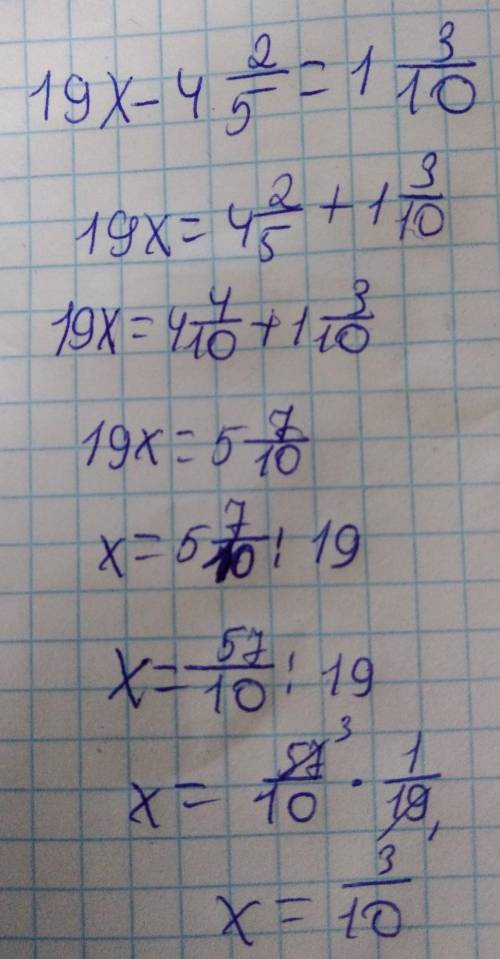 19x - 4 2/5 = 1 3/10
19x = 4 2/5 + 1 3/10
19x = 4 4/10 + 1 3/10
19x = 5 7/10
x = 5 7/10 : 19
x = 57/10 : 19
x = 57 3/10 · 1/19 1
x = 3/10